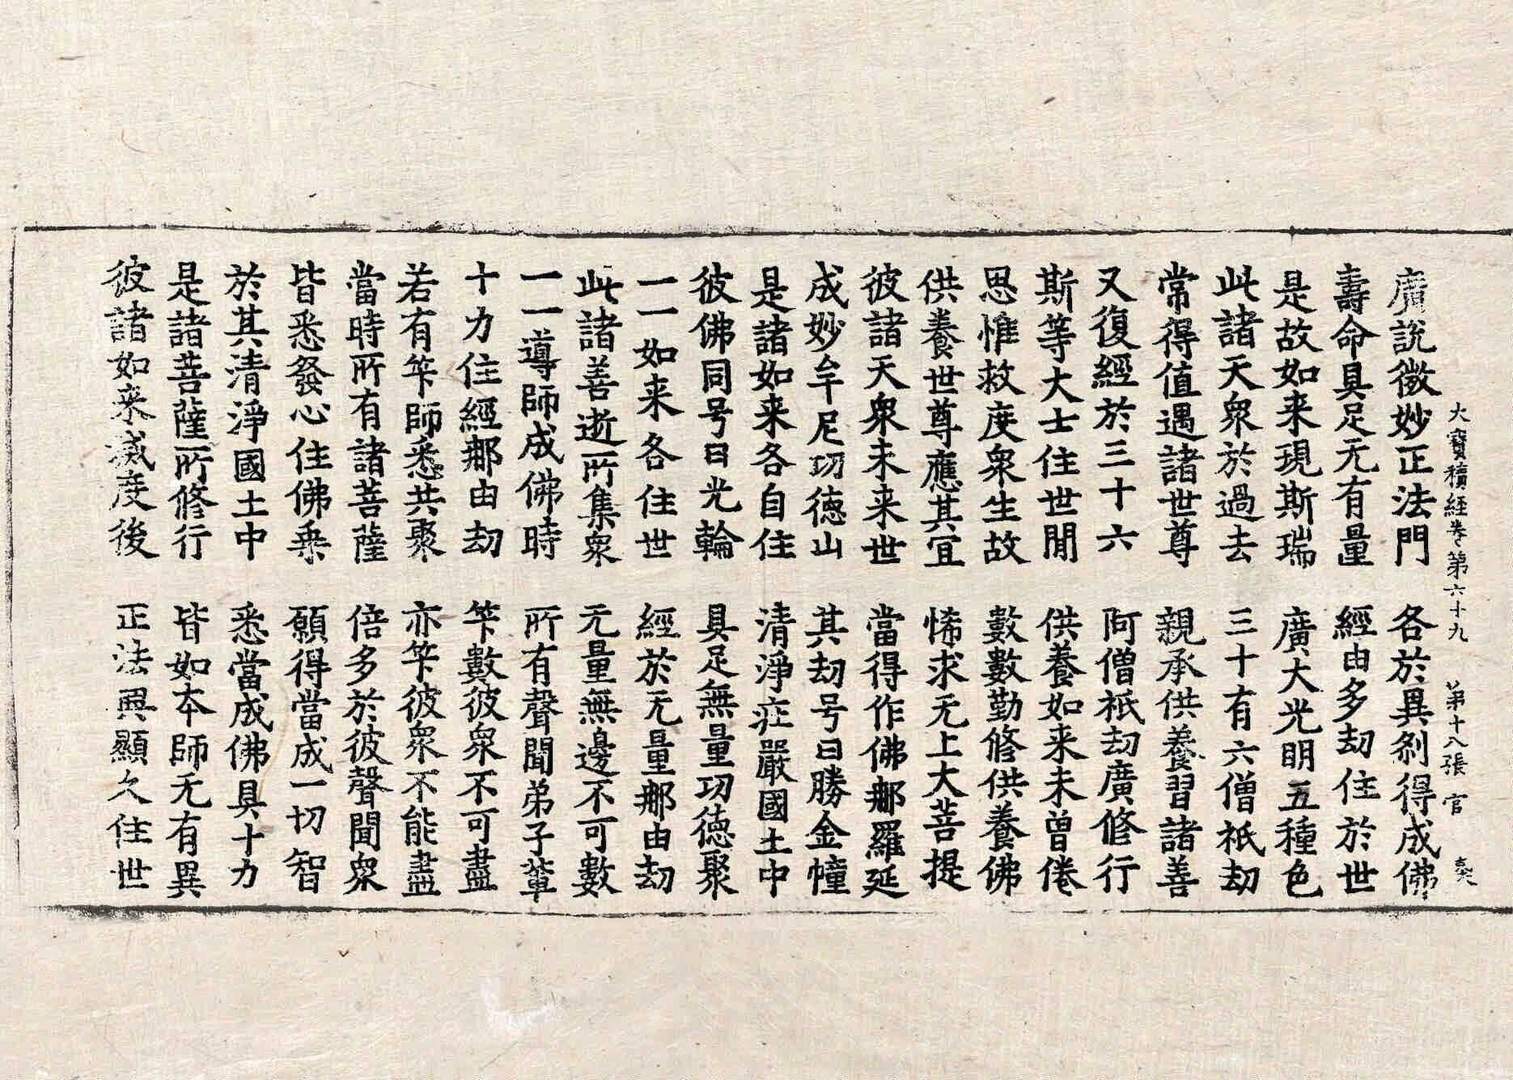 大寶積經卷第六十九 第十八張 官
廣說微妙正法門 各於異剎得成佛
壽命具足无有量 經由多劫住於世
是故如来現斯瑞 廣大光明五種色
此諸天衆於過去 三十有六僧祇劫
常得值遇諸世尊 親承供養習諸善
又復經於三十六 阿僧祇劫廣修行
斯等大士住世閒 供養如来未曾倦
思惟救度衆生故 數數勤修供養佛
供養世尊應其宜 悕求无上大菩提
彼諸天衆未来世 當得作佛那羅延
成妙牟尼功德山 其劫号曰勝金幢
是諸如来各自住 清淨莊嚴國土中
彼佛同号日光輪 具足無量功德聚
一一如来各住世 經於无量那由劫
此諸善逝所集衆 无量無邊不可數
一一導師成佛時 所有聲聞弟子輩
十力住經那由劫 等數彼衆不可盡
若有等師悉共聚 亦等彼衆不能盡
當時所有諸菩薩 倍多於彼聲聞衆
皆悉發心住佛乗 願得當成一切智
於其清淨國土中 悉當成佛具十力
是諸菩薩所修行 皆如本師无有異
彼諸如来滅度後 正法興顯久住世